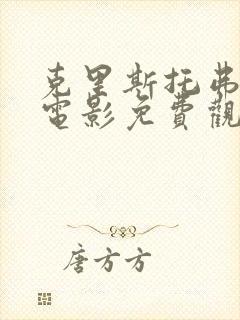 克里斯托弗
電影免費觀
唐方方